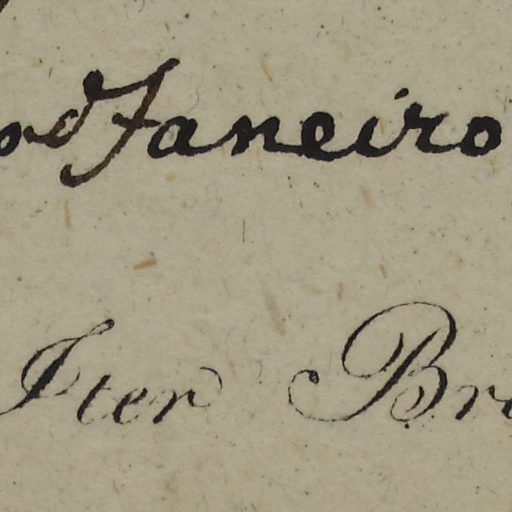 d Janeiro
Iter Br